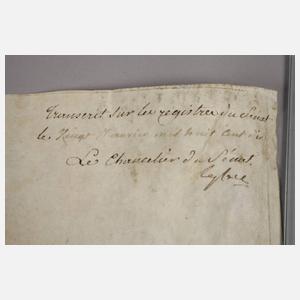 Transcrit sur les registres du Sénat
le Vingt Janvier mil huit cent dix
Le Chancelier du Sénat.